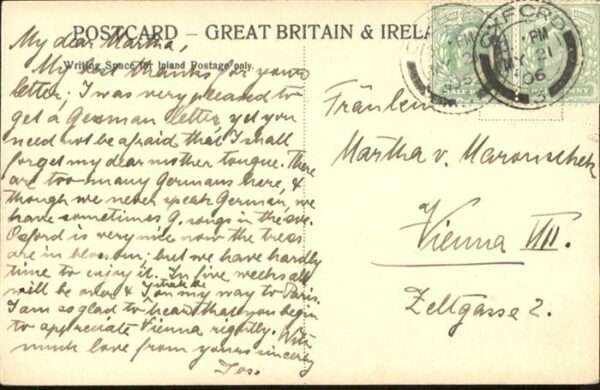 POSTCARD – GREAT BRITAIN & IRELA
Writing Space for Inland Postage only.
My dear Martha,
My best thanks for your
letter; I was very pleased to
get a German letter, yet you
need not be afraid that I shall
forget my dear mother tongue. There
are too many Germans here, &
though we never speak German, we
have sometimes G. songs in the eve.
Oxford is very nice now the trees
are in blossom; but we have hardly
time to enjoy it. In five weeks all
will be over & I shall be on my way to Paris.
I am so glad to hear that you begin
to appreciate Vienna rightly. With
much love from yours sincerely
Jos.
Fräulein
Martha v. Maronschek
Vienna VIII.
Zeltgasse 2.
OXFORD
PM
MY 21
06
HALF PENNY